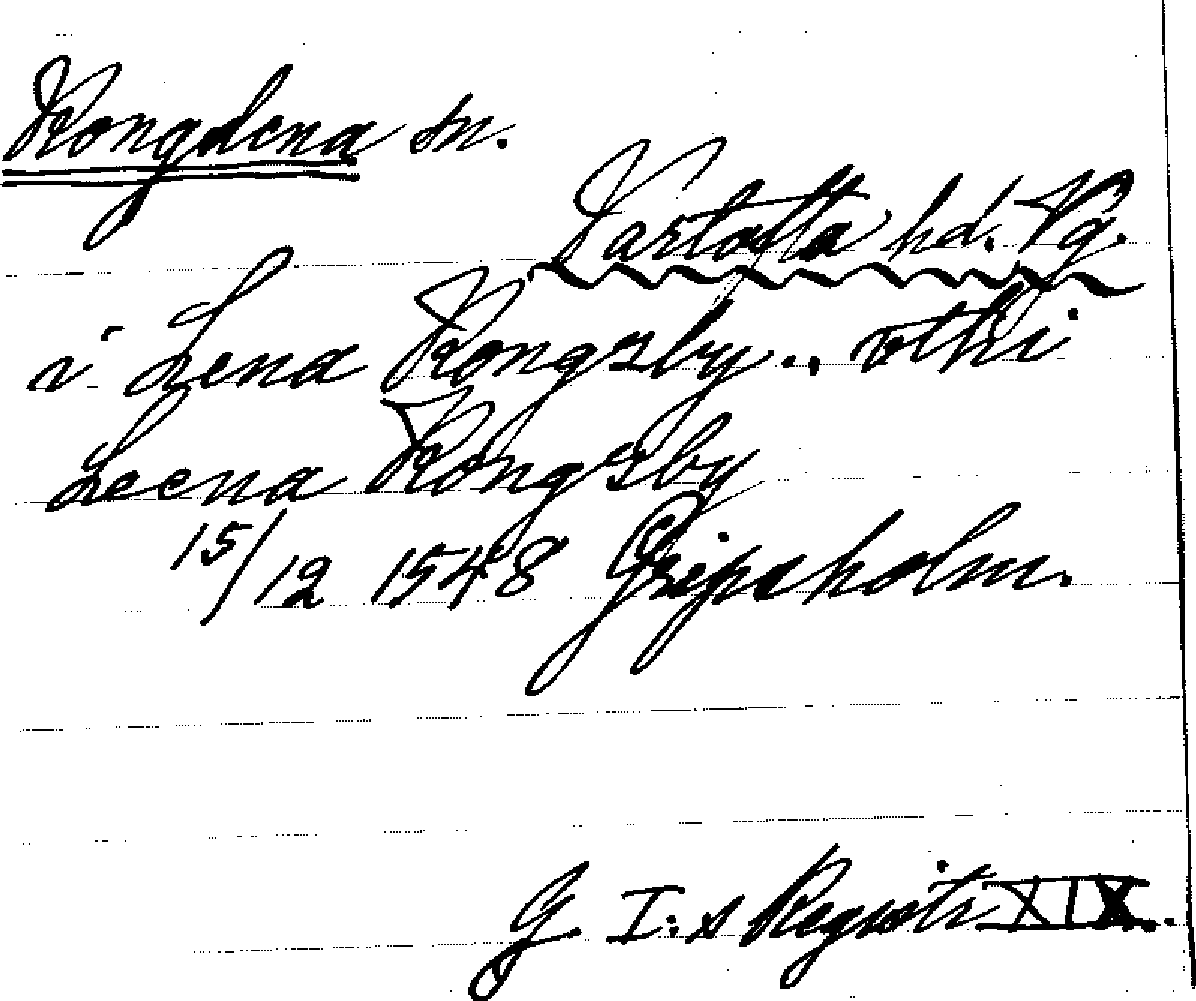 Kongslena sn.
Vartofta hd. Vg.
i Lena Kongzby .., vthi
Leena Kongzby
15/12 1548 Gripsholm.
G. I:s Registr. XIX.